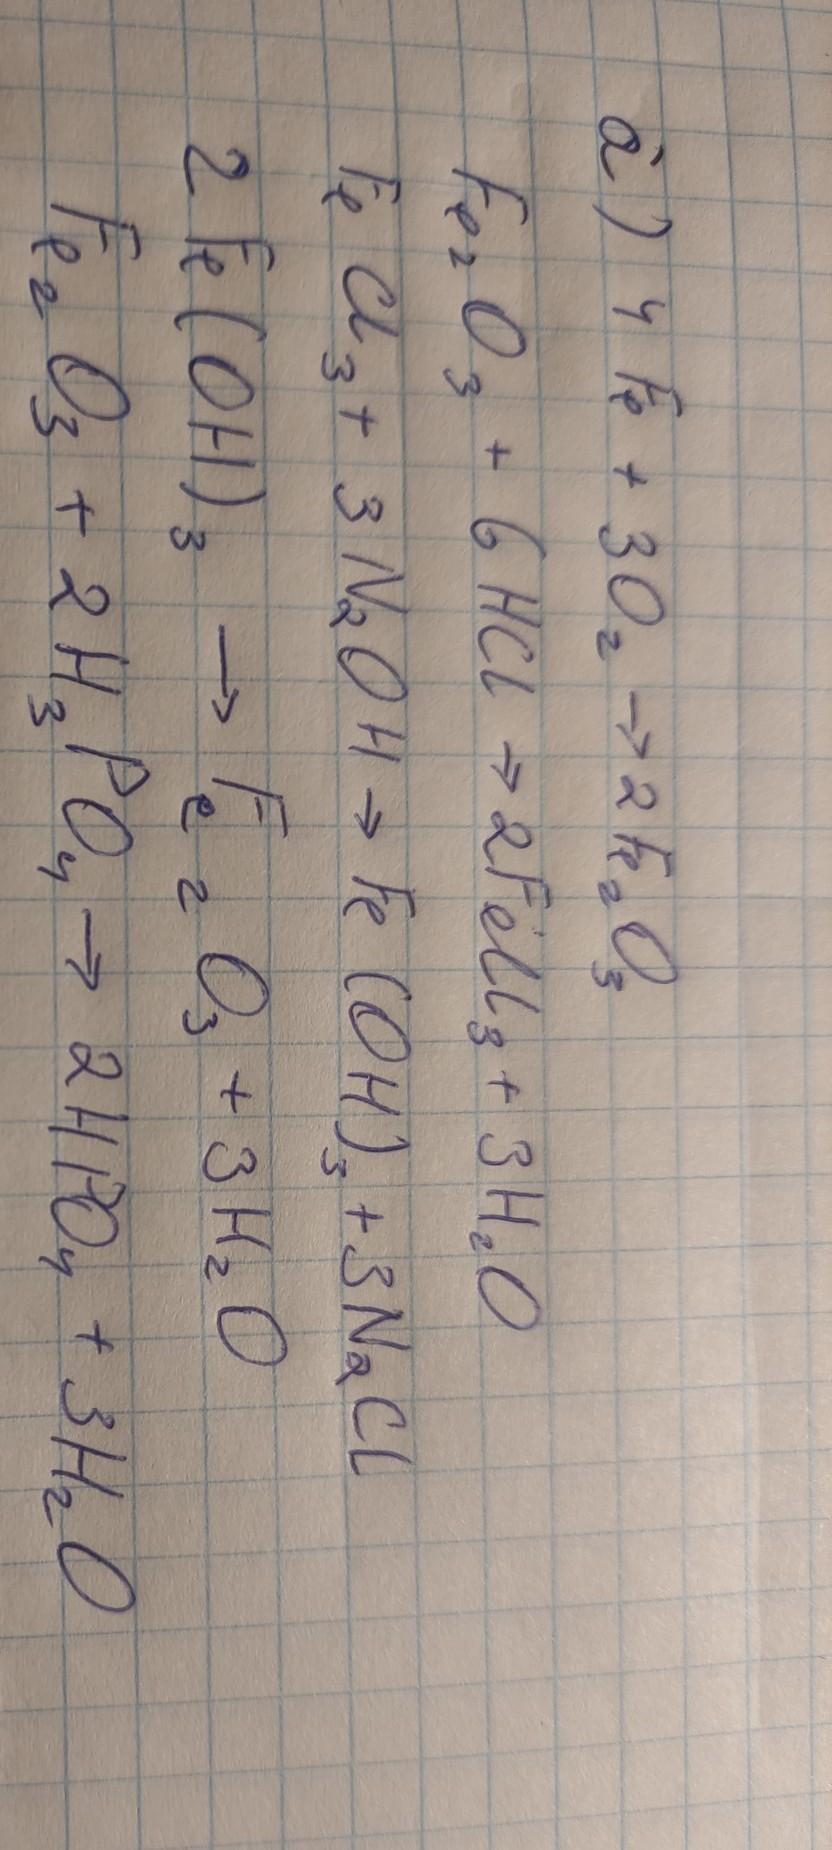 а) 4Fe + 3O₂ → 2Fe₂O₃
Fe₂O₃ + 6HCl → 2FeCl₃ + 3H₂O
FeCl₃ + 3NaOH → Fe(OH)₃ + 3NaCl
2Fe(OH)₃ → Fe₂O₃ + 3H₂O
Fe₂O₃ + 2H₃PO₄ → 2HPO₄ + 3H₂O